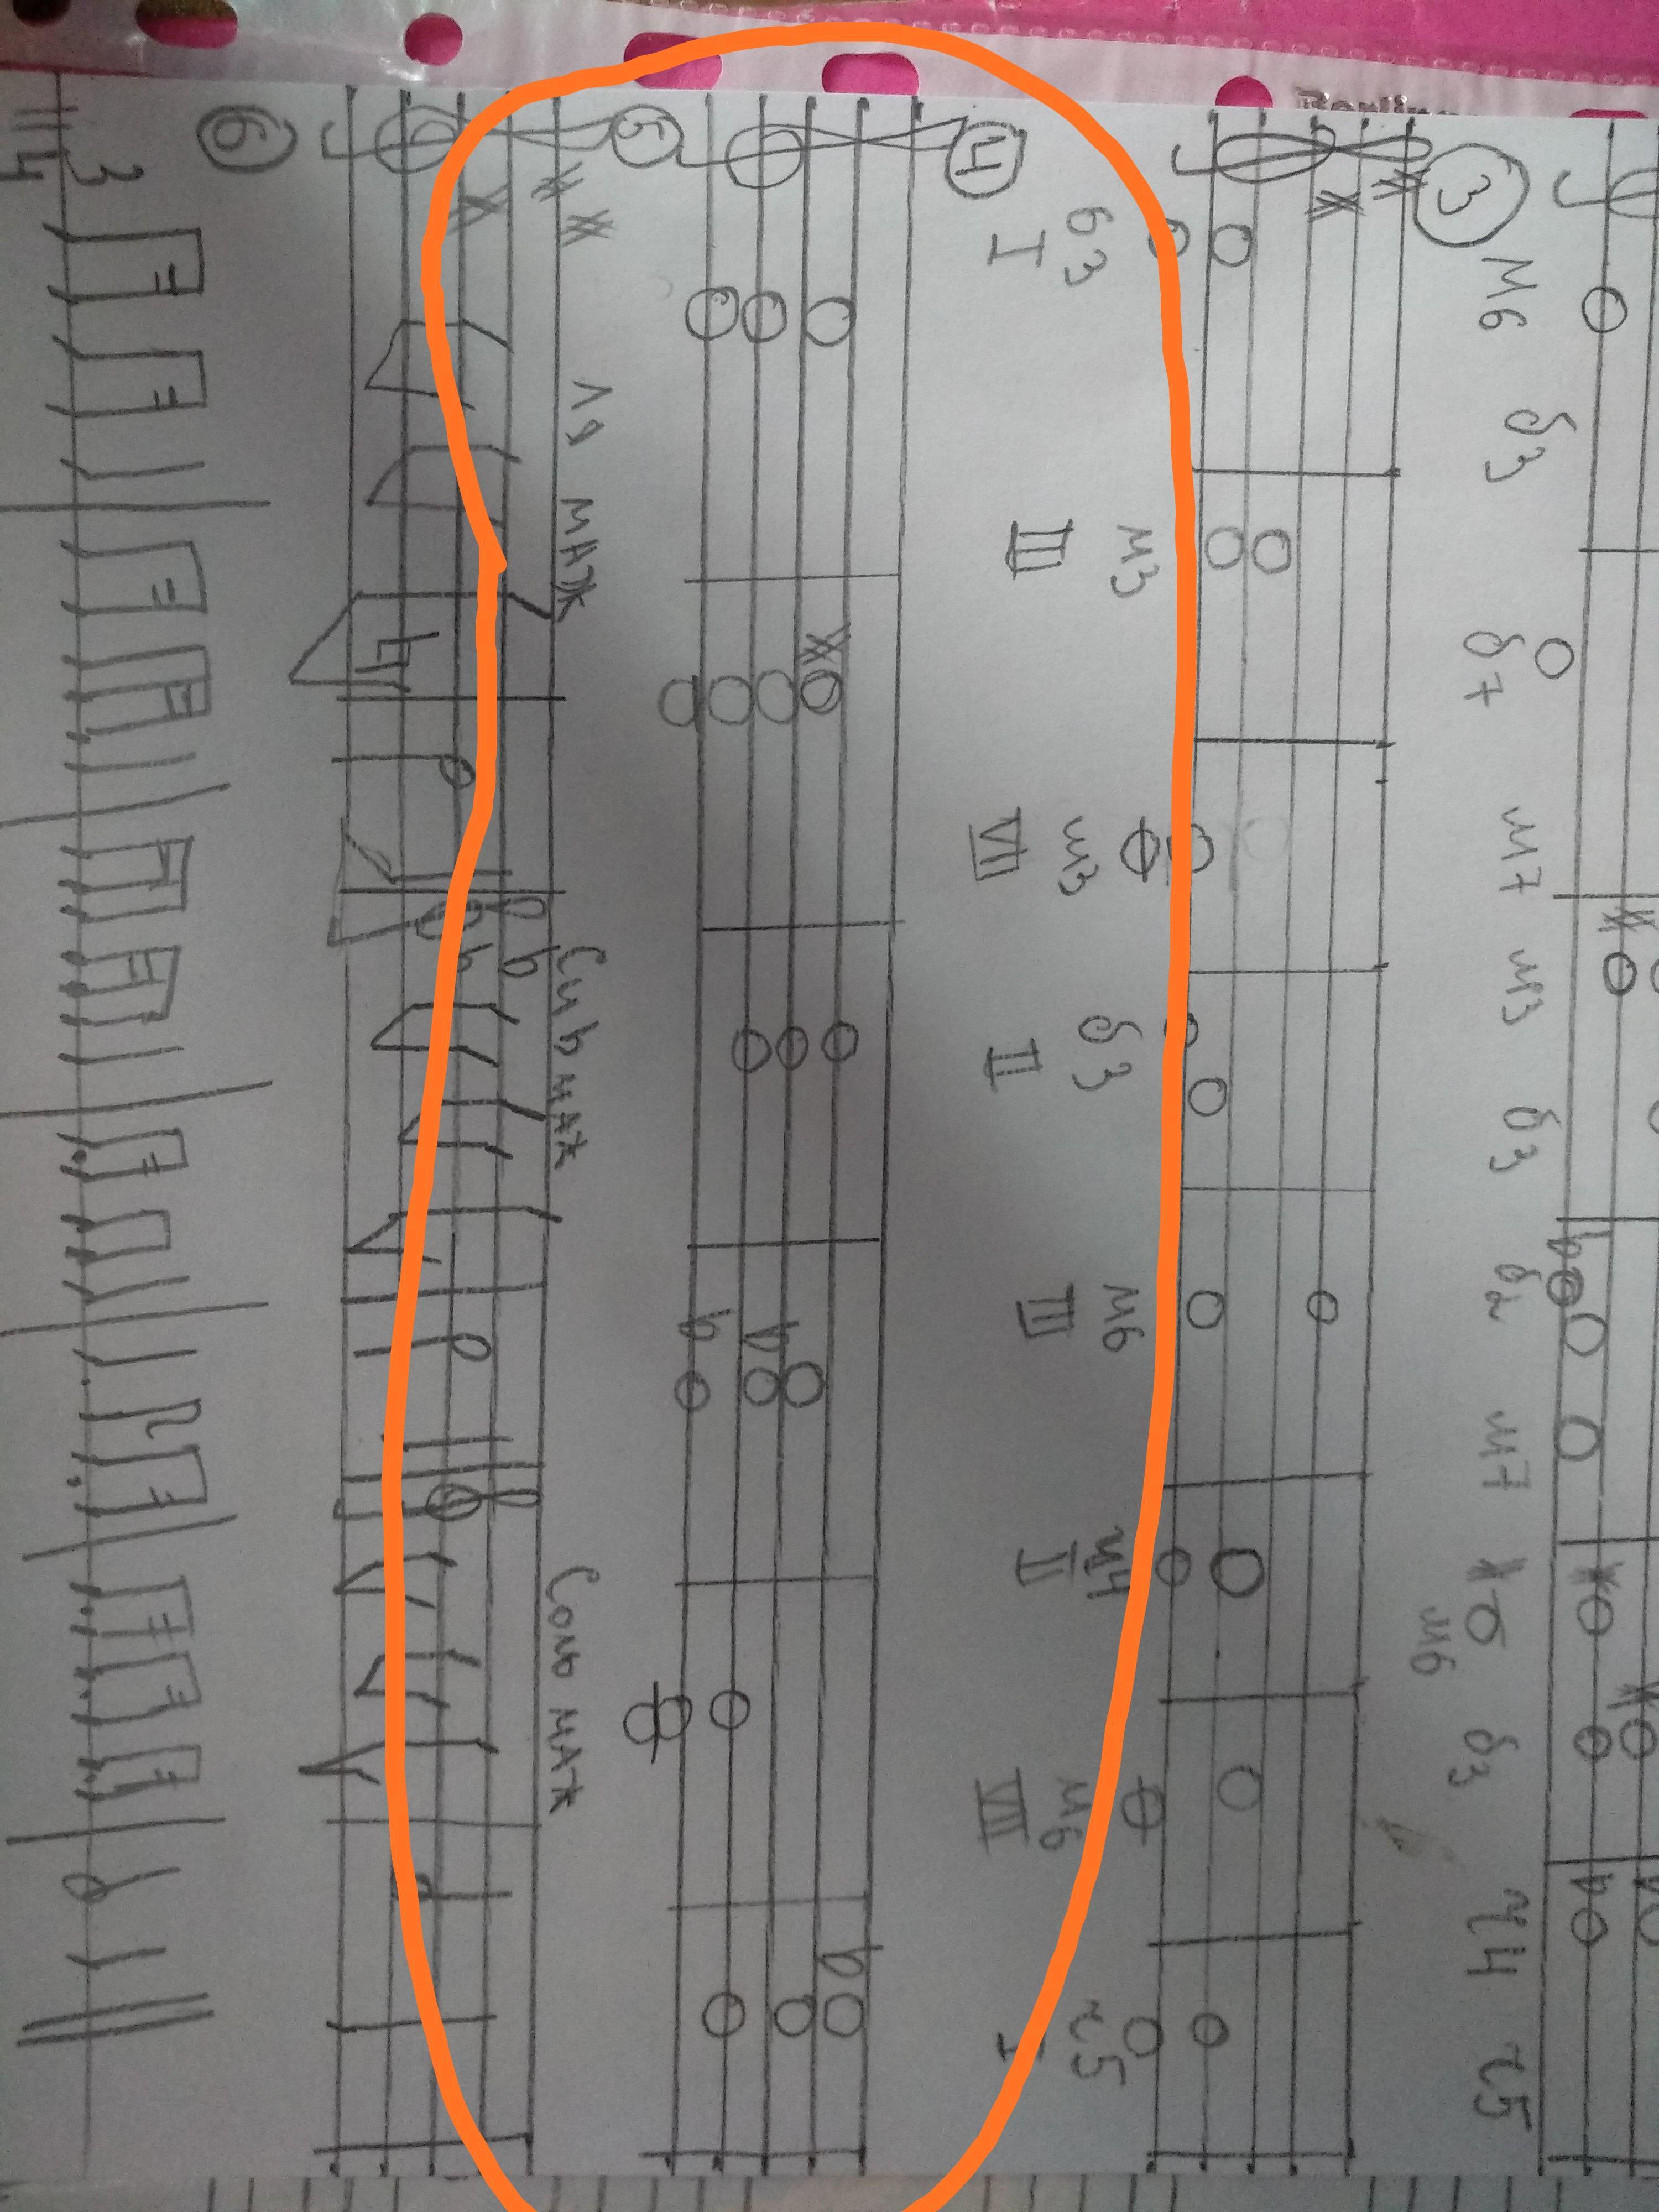 м6 б3 б7 м7 м3 б3 б2 м7 м6 б3 ч4 ч5
3
б3 м3 м3 б3 м6 ч4 м6 ч5
I III VII II III II VII I
4
5
Ля маж Си b маж Соль маж
6
3
4